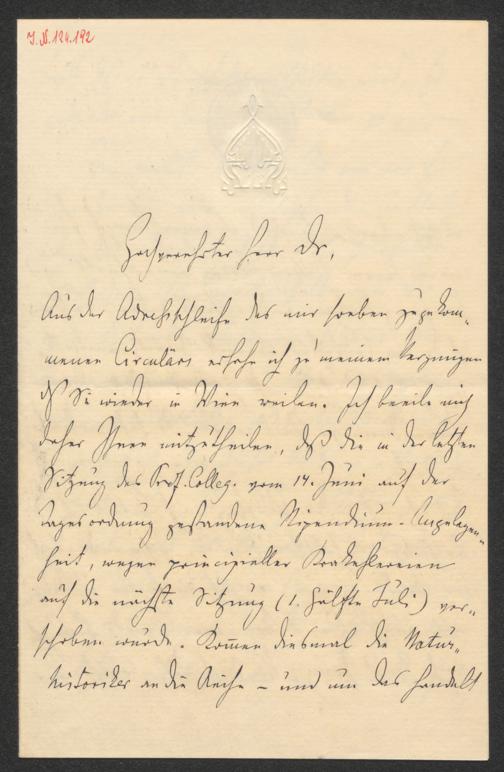 J.N. 124.192
Hochverehrter Herr Dr,
Aus der Adressschleife des mir soeben zugekom-
menen Circulärs ersehe ich zu meinem Vergnügen
daß Sie wieder in Wien weilen. Ich beeile mich
daher Ihnen mitzutheilen, daß die in der letzten
Sitzung des Prof. Colleg. vom 14. Juni auf der
Tagesordnung gestandene Stipendium-Angelegen-
heit, wegen principieller Krakehlereien
auf die nächste Sitzung (1. Hälfte Juli) ver-
schoben wurde. Kommen diesmal die Natur-
historiker an die Reihe – und um das handelt